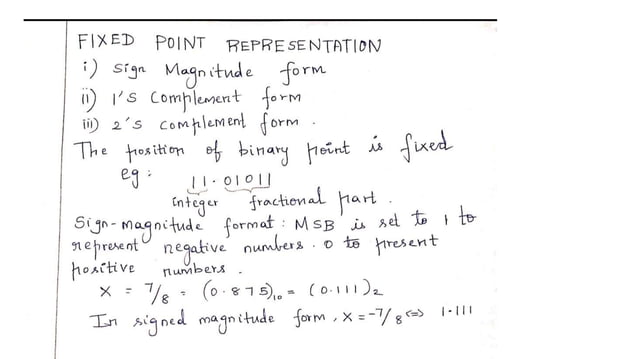 FIXED POINT REPRESENTATION
i) Sign Magnitude form
ii) 1's Complement form
iii) 2's complement form.
The position of binary point is fixed
eg: 11.01011
integer fractional part.
Sign-magnitude format: MSB is set to 1 to
represent negative numbers. 0 to present
positive numbers.
X = 7/8 = (0.875)10 = (0.111)2
In signed magnitude form, X = -7/8 <=> 1.111